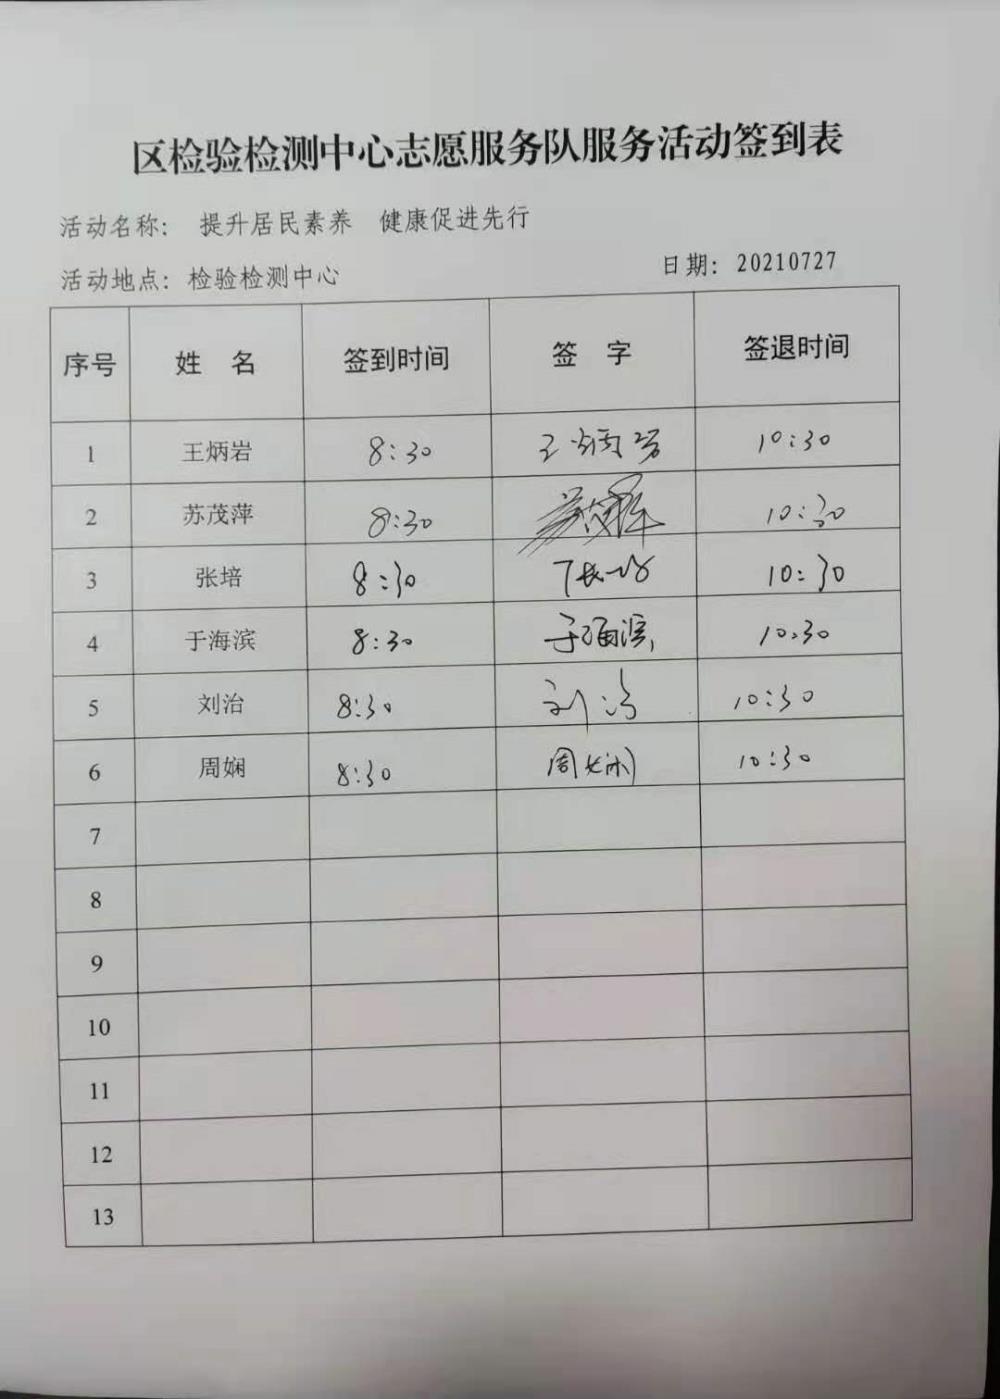 区检验检测中心志愿服务队服务活动签到表
活动名称： 提升居民素养 健康促进先行
活动地点：检验检测中心 日期：20210727
序号 姓 名 签到时间 签 字 签退时间
1 王炳岩 8:30 王炳岩 10:30
2 苏茂萍 8:30 苏茂萍 10:30
3 张培 8:30 张培 10:30
4 于海滨 8:30 于海滨 10:30
5 刘治 8:30 刘治 10:30
6 周娴 8:30 周娴 10:30
7
8
9
10
11
12
13